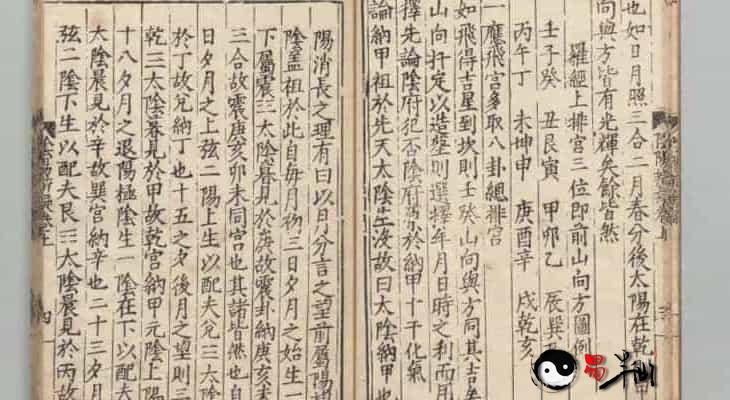 也如日月照三合二月春分後太陽在乾甲
向與方皆有光輝矣餘皆然
羅經上排宮三位即前山向方圖例
壬子癸 丑艮寅 甲卯乙 辰巽
丙午丁 未坤申 庚酉辛 戌乾亥
一應飛宮多取八卦總排宮
如飛得吉星到坎則壬癸山向與方同其吉矣
山向扦定以造塟則選擇年月日時之利而用
擇先論陰府犯否陰府於納甲十干化氣
論納甲祖於先天太陰生沒故曰太陰納甲也
陽消長之理有曰以月分言之望前屬陽
陰盖祖於此自每月初三日夕月之始生一
下屬震☳太陰暮見於庚故震卦納庚亥未
三合故震庚亥卯未同宮也其諸皆然也自
日夕月之上弦二陽上生以配夫兌☱太陰
於丁故兌納丁也十五之夕後月之望則三
乾☰太陰暮見於甲故乾宮納甲元陰上陽
十八夕月之退陽極陰生一陰在下以配夫
太陰晨見於辛故巽宮納辛也二十三夕月
弦二陰下生以配夫艮☶太陰晨見於丙故
易